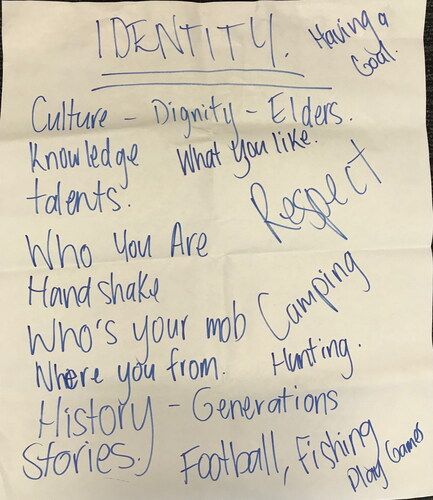 IDENTITY.
Having a
Goal.
Culture - Dignity - Elders.
Knowledge
What you like.
talents.
Respect
Who You Are
Handshake
Camping
Who's your mob
Where you from.
Hunting.
History - Generations
Stories.
Football, Fishing
Play Games